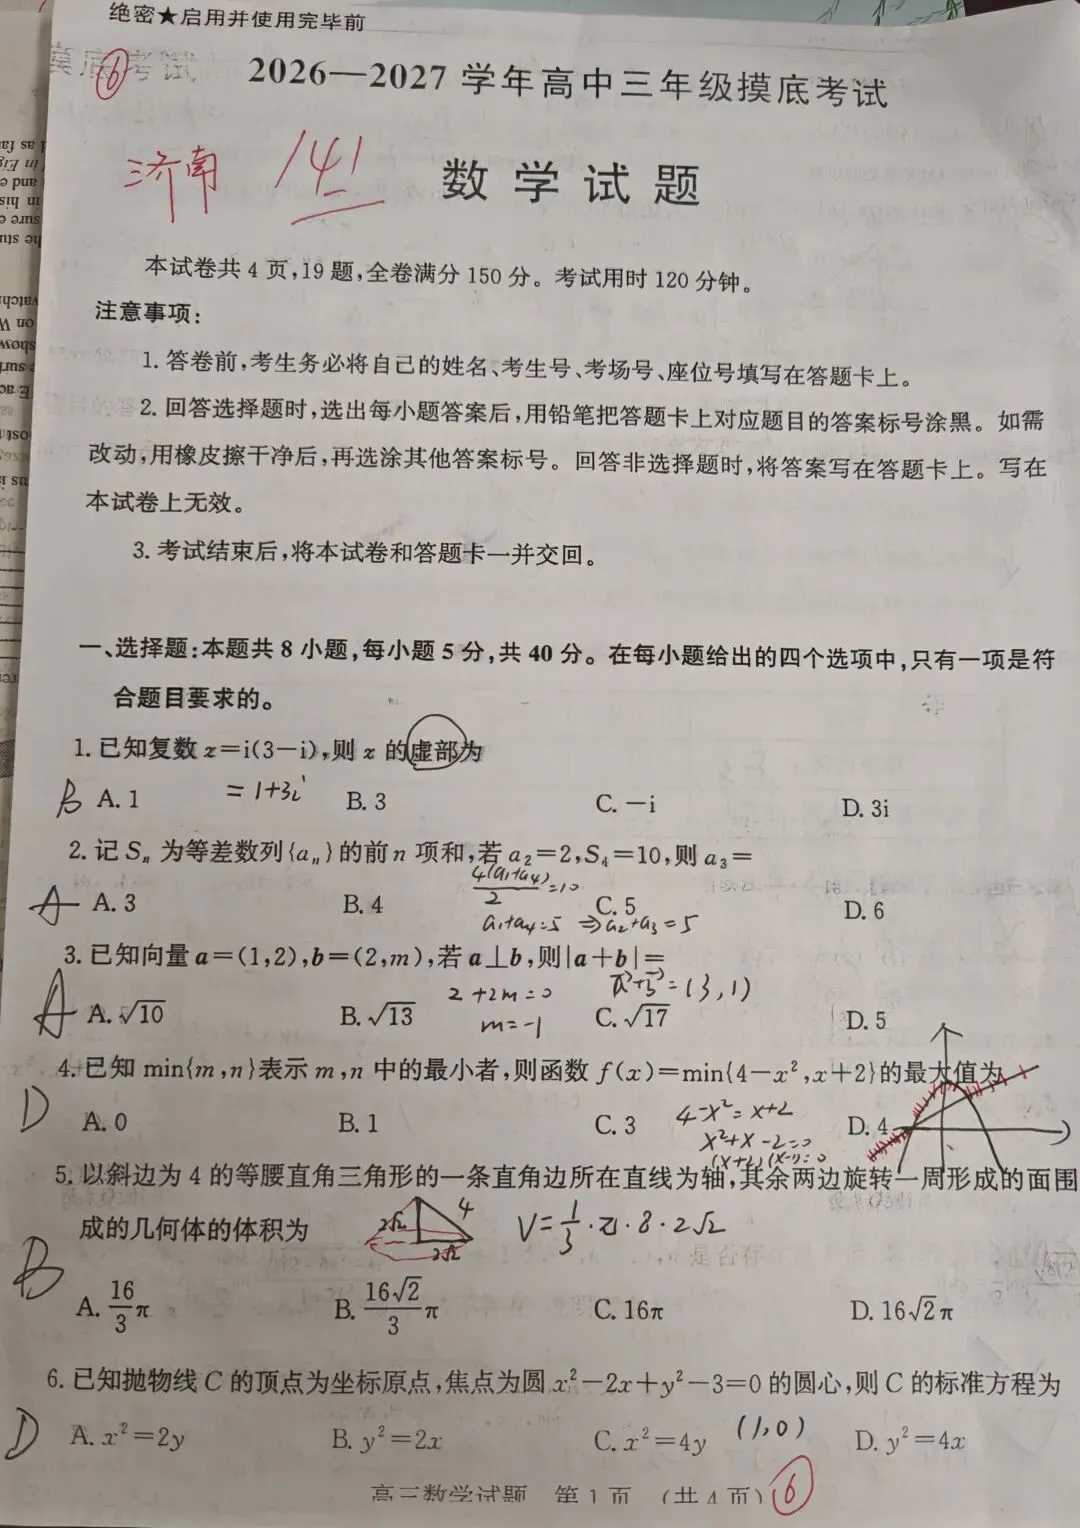 绝密★启用并使用完毕前
⑥
2026—2027学年高中三年级摸底考试
济南 141
数学试题
本试卷共4页,19题,全卷满分150分。考试用时120分钟。
注意事项:
1. 答卷前,考生务必将自己的姓名、考生号、考场号、座位号填写在答题卡上。
2. 回答选择题时,选出每小题答案后,用铅笔把答题卡上对应题目的答案标号涂黑。如需
改动,用橡皮擦干净后,再选涂其他答案标号。回答非选择题时,将答案写在答题卡上。写在
本试卷上无效。
3. 考试结束后,将本试卷和答题卡一并交回。
一、选择题:本题共8小题,每小题5分,共40分。在每小题给出的四个选项中,只有一项是符
合题目要求的。
1. 已知复数 z=i(3−i),则 z 的虚部为
=1+3i
B A. 1 B. 3 C. −i D. 3i
2. 记 Sₙ 为等差数列{aₙ}的前 n 项和,若 a₂=2,S₄=10,则 a₃=
4(a₁+a₄)/2=10
A A. 3 B. 4 C. 5 D. 6
a₁+a₄=5 ⇒a₂+a₃=5
3. 已知向量 a=(1,2),b=(2,m),若 a⊥b,则|a+b|=
2+2m=0 a+b=(3,1)
A A. √10 B. √13 C. √17 D. 5
m=-1
4. 已知 min{m,n}表示 m,n 中的最小者,则函数 f(x)=min{4−x²,x+2}的最大值为
D A. 0 B. 1 C. 3 D. 4
4-x²=x+2
x²+x-2=0
(x+2)(x-1)=0
5. 以斜边为4的等腰直角三角形的一条直角边所在直线为轴,其余两边旋转一周形成的面围
成的几何体的体积为
2√2 4 2√2 V=1/3·π·8·2√2
B A. 16/3 π B. 16√2/3 π C. 16π D. 16√2π
6. 已知抛物线 C 的顶点为坐标原点,焦点为圆 x²−2x+y²−3=0 的圆心,则 C 的标准方程为
(1,0)
D A. x²=2y B. y²=2x C. x²=4y D. y²=4x
高三数学试题 第1页 (共4页) ⑥